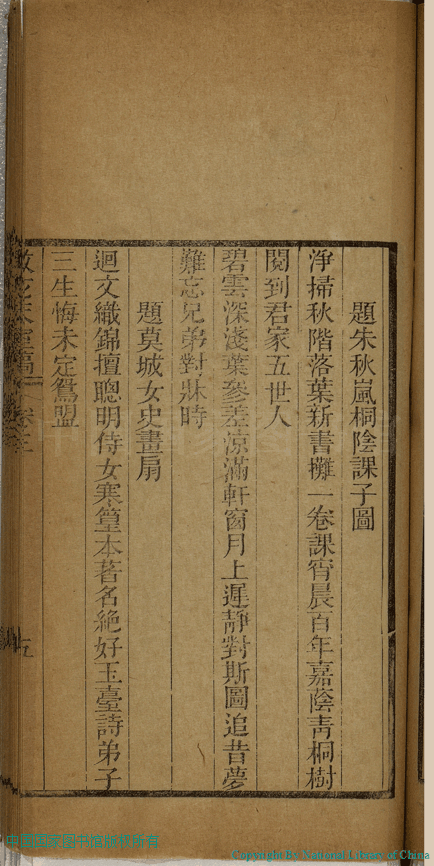 題朱秋嵐桐陰課子圖
淨掃秋階落葉新書攤一卷課宵晨百年嘉蔭青桐樹
閱到君家五世人
碧雲深淺葉參差涼滿軒窗月上遲靜對斯圖追昔夢
難忘兄弟對牀時
題莫城女史畫扇
迴文織錦擅聰明侍女寒簧本著名絶好玉臺詩弟子
三生悔未定鴛盟
卷三
Copyright By National Library of China